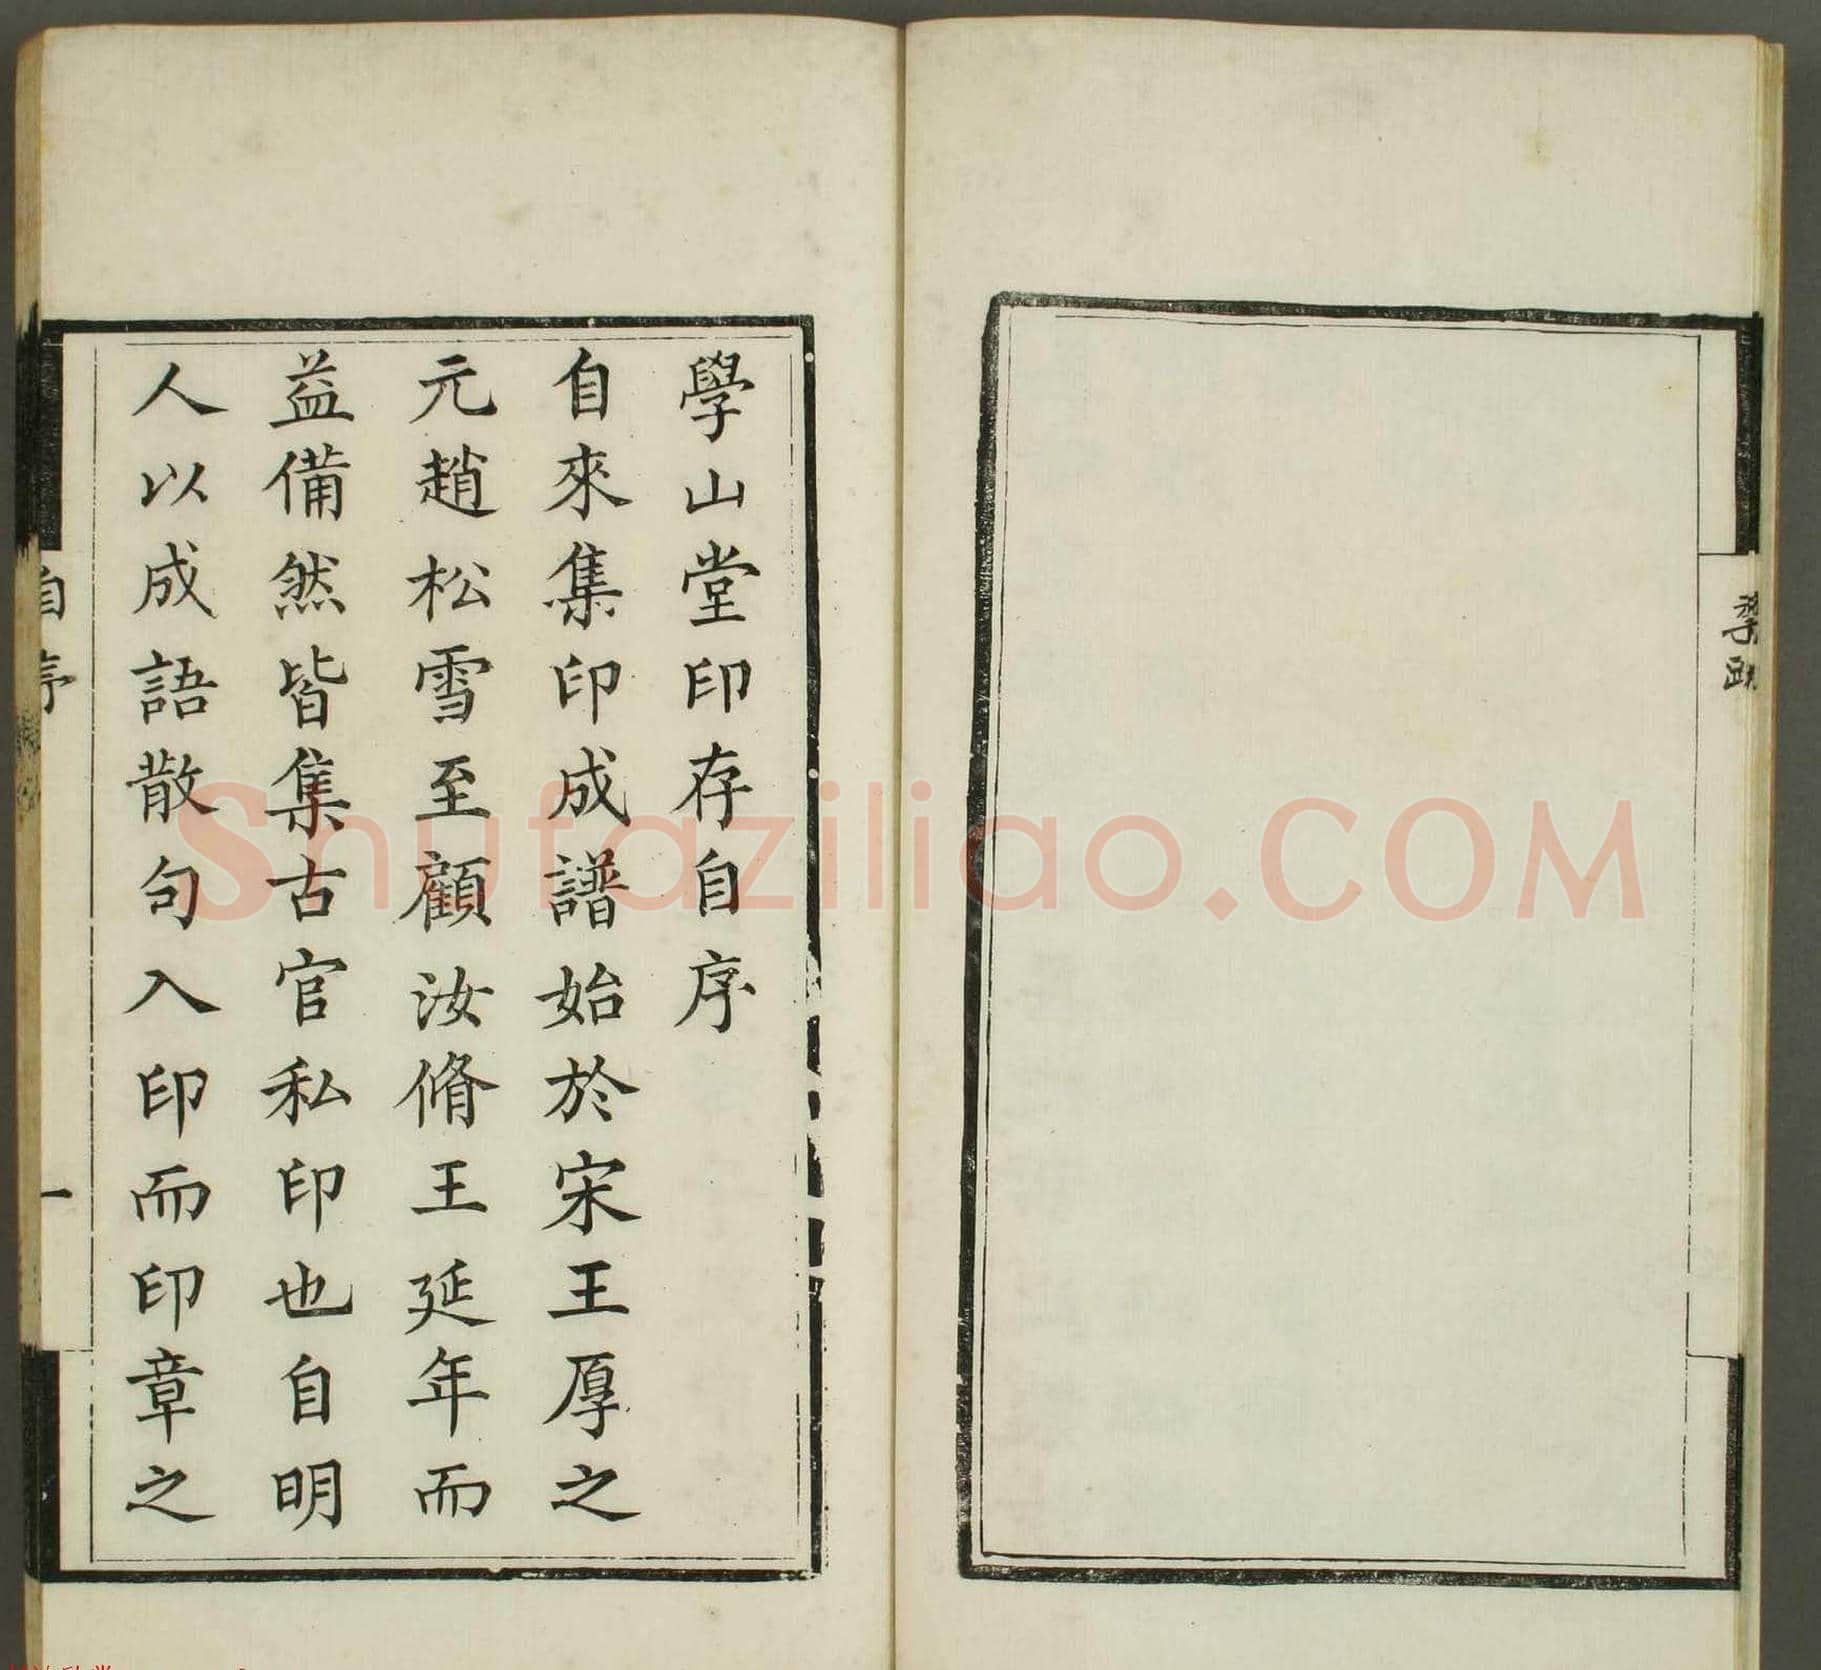 學山堂印存自序
自來集印成譜始於宋王厚之
元趙松雪至顧汝脩王延年而
益備然皆集古官私印也自明
人以成語散句入印而印章之
自序
一
Shufaziliao.COM